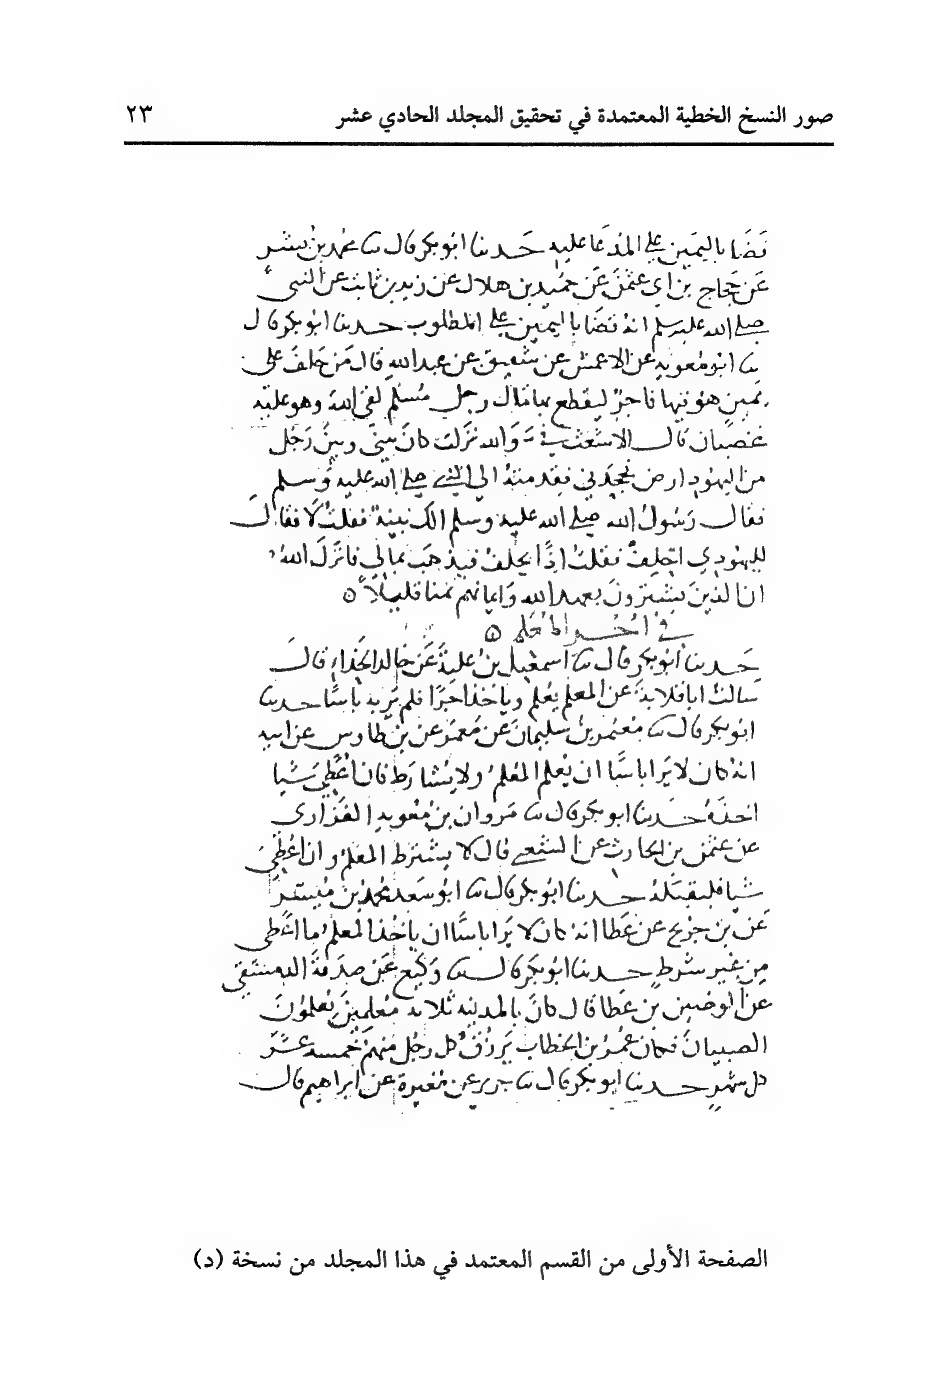 صور النسخ الخطية المعتمدة في تحقيق المجلد الحادي عشر ٢٣
قضا باليمين على المدعا عليه حدثنا ابو بكر قال نا محمد بن بشر
عن حجاج بن ابي عثمن عن حميد بن هلال عن زيد بن ثابت عن النبي
صلى الله عليه وسلم انه قضا باليمين على المطلوب حدثنا ابو بكر قال
نا ابو معوية عن الاعمش عن شقيق عن عبد الله قال من حلف على
يمين هو فيها فاجر ليقطع بها مال رجل مسلم لقي الله وهو عليه
غضبان قال الاشعث في والله نزلت كان بيني وبين رجل
من اليهود ارض فجحدني فقدمته الى النبي صلى الله عليه وسلم
فقال رسول الله صلى الله عليه وسلم الك بينة فقلت لا فقال
لليهودي احلف فقلت اذا يحلف فيذهب بمالي فانزل الله
ان الذين يشترون بعهد الله وايمانهم ثمنا قليلا ٥
في اجر المعلم ٥
حدثنا ابو بكر قال نا اسمعيل بن علية عن خالد الحذاء قال
سالت ابا قلابة عن المعلم يعلم وياخذ اجرا فلم ير به باسا حدثنا
ابو بكر قال نا معتمر بن سليمان عن معمر عن بن طاوس عن ابيه
انه كان لا يرا باسا ان يعلم المعلم ولا يشارط فان اعطي شيا
اخذه حدثنا ابو بكر قال نا مروان بن معوية الفزاري
عن عثمن بن الحارث عن الشعبي قال لا يشترط المعلم وان اعطي
شيا فليقبله حدثنا ابو بكر قال نا ابو سعد محمد بن ميسر
عن بن جريج عن عطا انه كان لا يرا باسا ان ياخذ المعلم ما اعطي
من غير شرط حدثنا ابو بكر قال نا وكيع عن صدقة الدمشقي
عن الوضين بن عطا قال كان بالمدينه ثلاثة معلمين يعلمون
الصبيان فكان عمر بن الخطاب يرزق كل رجل منهم خمسة عشر
كل شهر حدثنا ابو بكر قال نا جرير عن مغيرة عن ابراهيم قال
الصفحة الأولى من القسم المعتمد في هذا المجلد من نسخة (د)